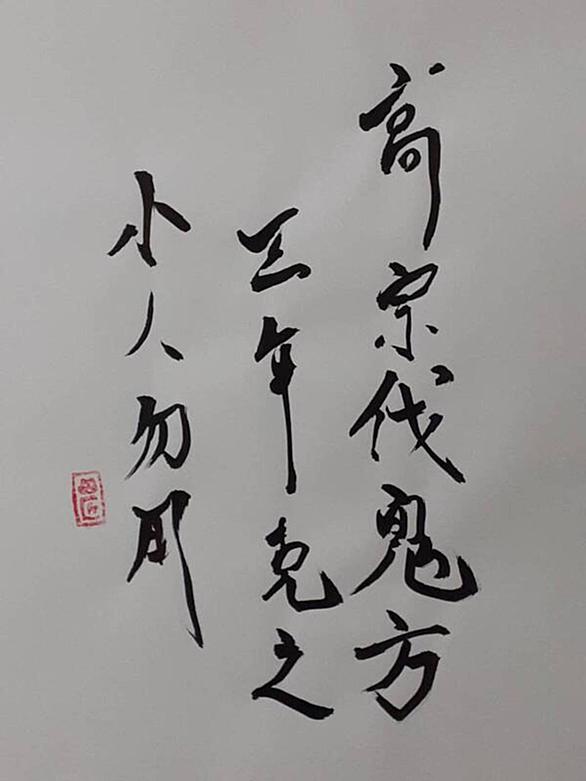 高宗伐鬼方
三年克之
小人勿用